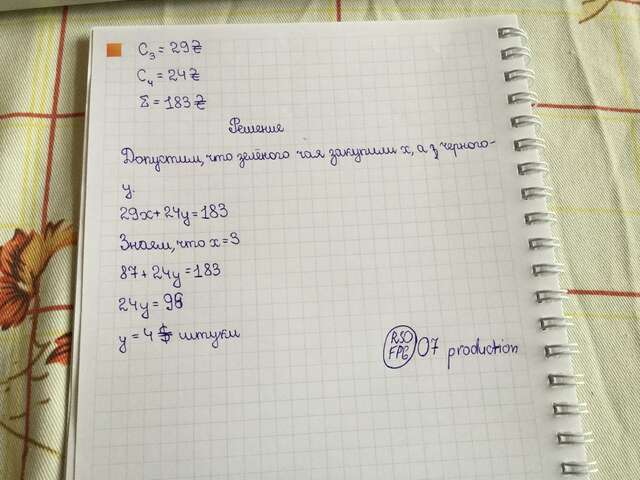 C₃ = 29₴
C₄ = 24₴
Σ = 183₴
Решение
Допустим, что зелёного чая закупили x, а черного-
y.
29x+24y=183
Знаем, что x=3
87+24y=183
24y=96
y=4 штуки
RSO
FPG
07 production